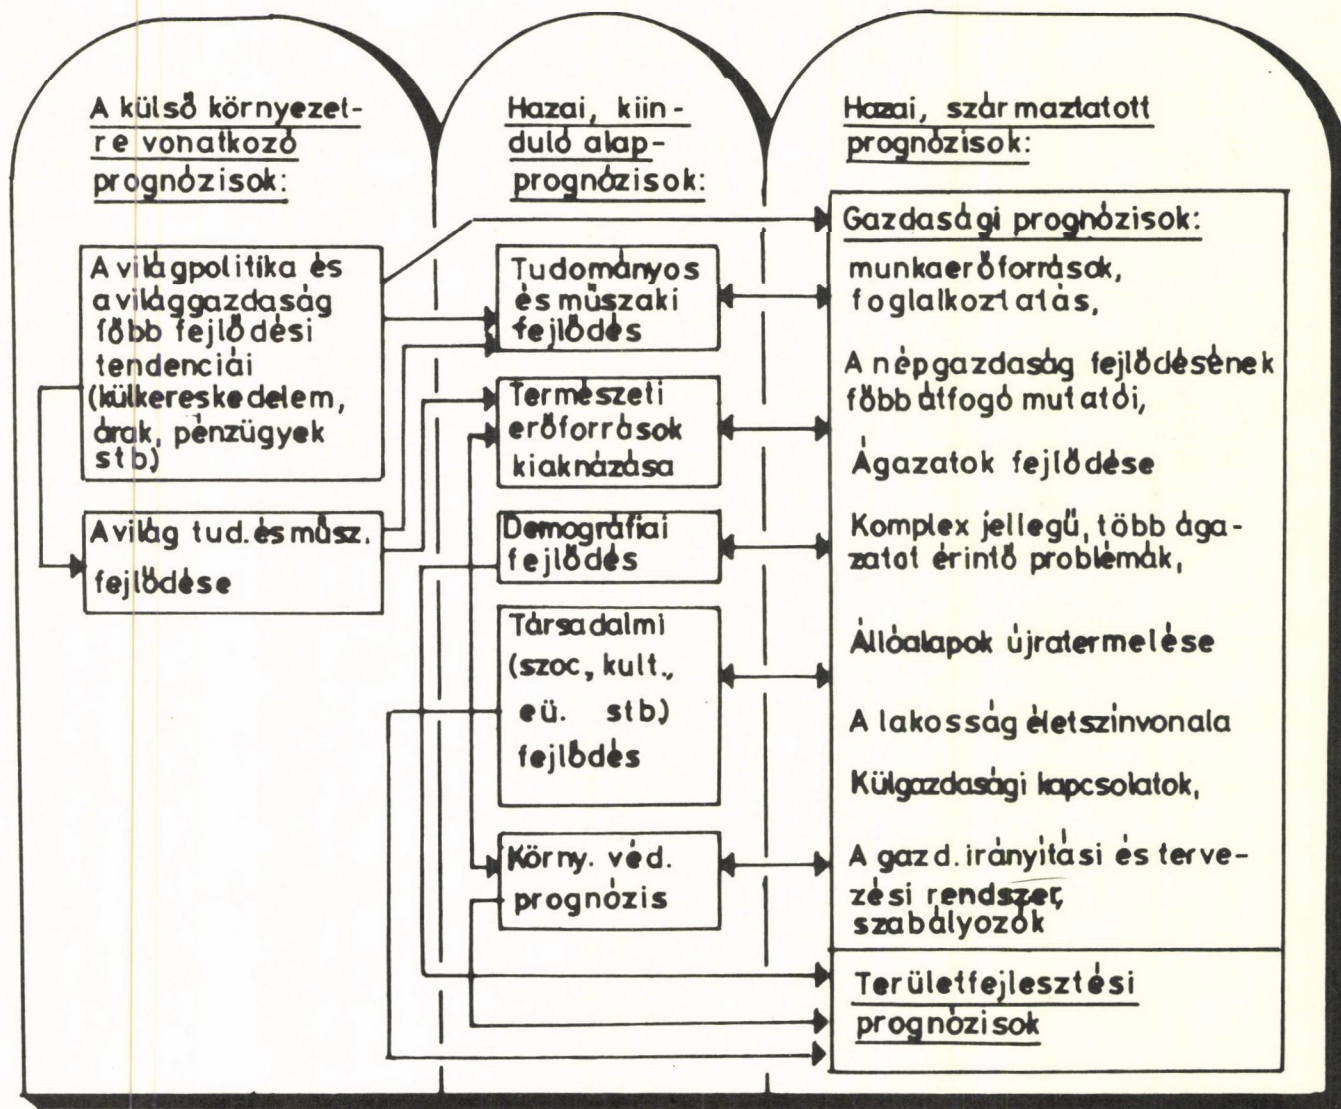 A külső környezet-
re vonatkozó
prognózisok:
A világpolitika és
a világgazdaság
főbb fejlődési
tendenciái
(külkereskedelem,
árak, pénzügyek
stb)
A világ tud. és műsz.
fejlődése
Hazai, kiin-
duló alap-
prognózisok:
Tudományos
és műszaki
fejlődés
Természeti
erőforrások
kiaknázása
Demográfiai
fejlődés
Társadalmi
(szoc., kult.,
eü. stb)
fejlődés
Körny. véd.
prognózis
Hazai, származtatott
prognózisok:
Gazdasági prognózisok:
munkaerőforrások,
foglalkoztatás,
A népgazdaság fejlődésének
főbb átfogó mutatói,
Ágazatok fejlődése
Komplex jellegű, több ága-
zatot érintő problémák,
Állóalapok újratermelése
A lakosság életszínvonala
Külgazdasági kapcsolatok,
A gazd. irányítási és terve-
zési rendszer,
szabályozók
Területfejlesztési
prognózisok